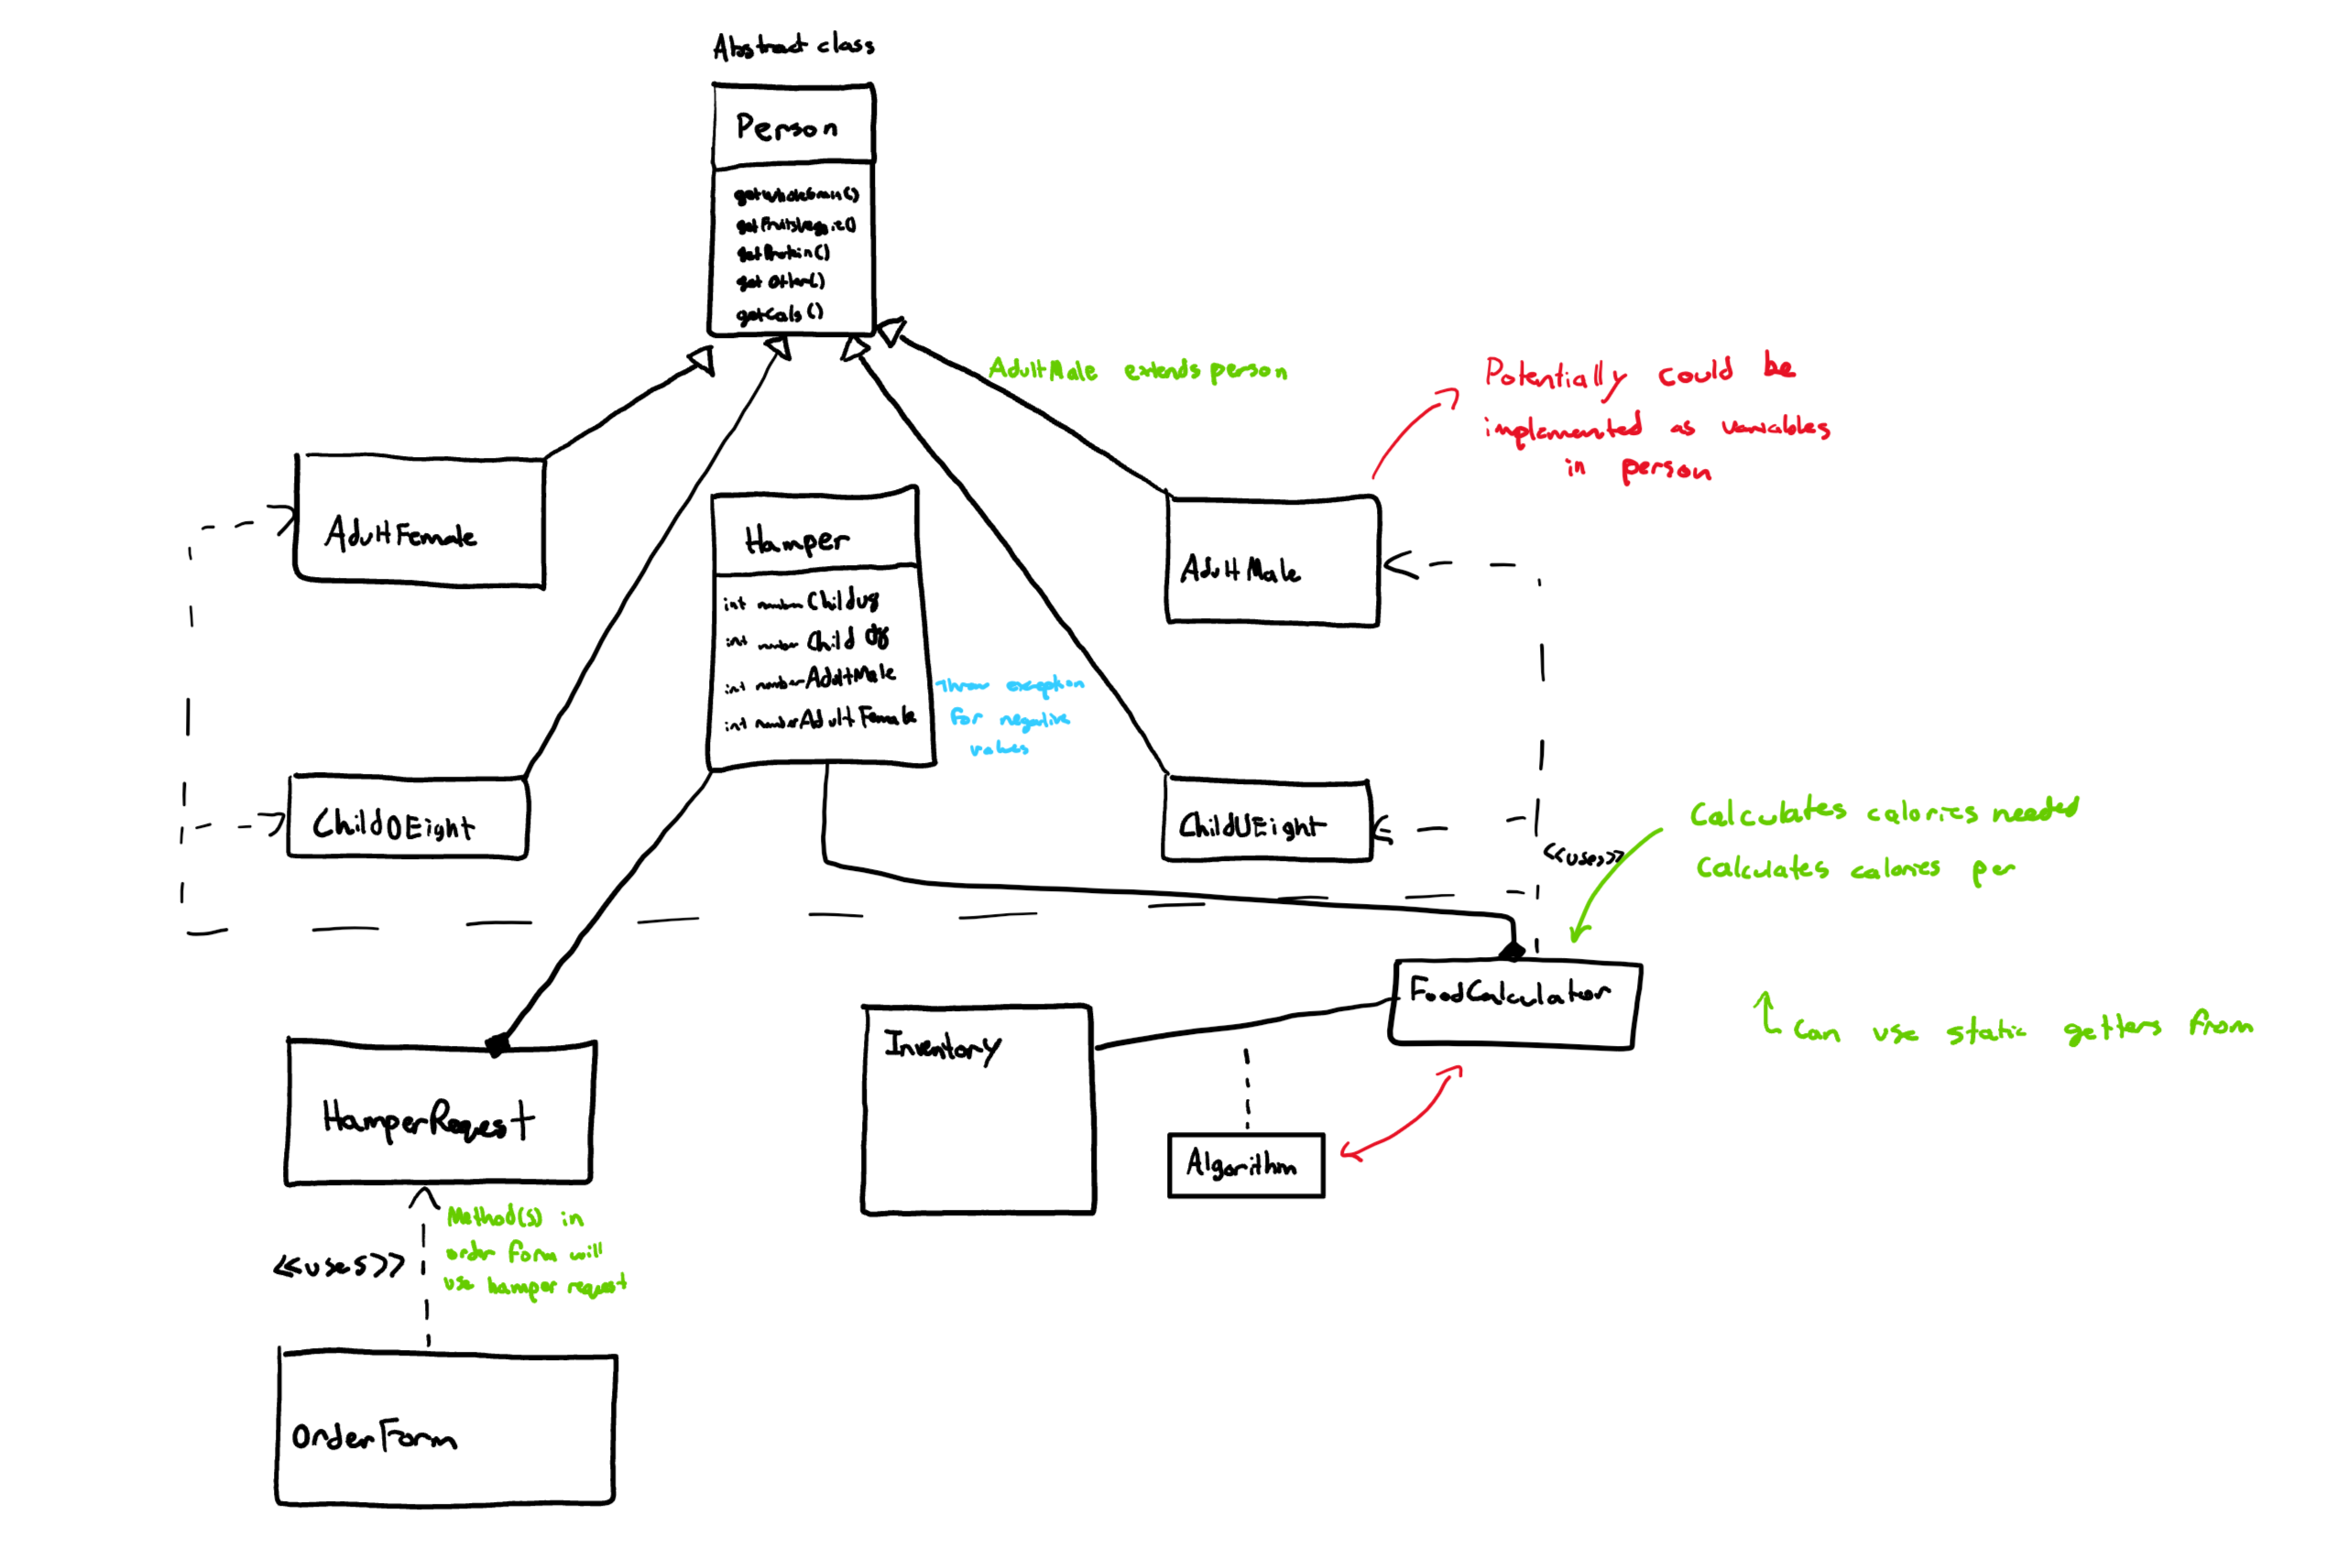 Abstract class
Person
getWholeGrain()
getFruitsVeggie()
getProtein()
getOther()
getCals()
AdultMale extends person
Potentially could be
implemented as variables
in person
AdultFemale
Hamper
int number ChildU8
int number Child O8
int number AdultMale
int number Adult Female
Throw exception
for negative
values
AdultMale
ChildOEight
ChildUEight
<<uses>>
Calculates calories needed
Calculates calories per
FoodCalculator
can use static getters from
Inventory
Algorithm
HamperReqest
Method(s) in
order form will
use hamper request
<<uses>>
OrderForm